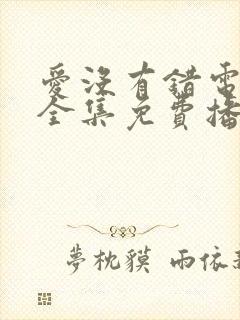 愛沒有錯電
全集免費播
夢枕貘 雨依